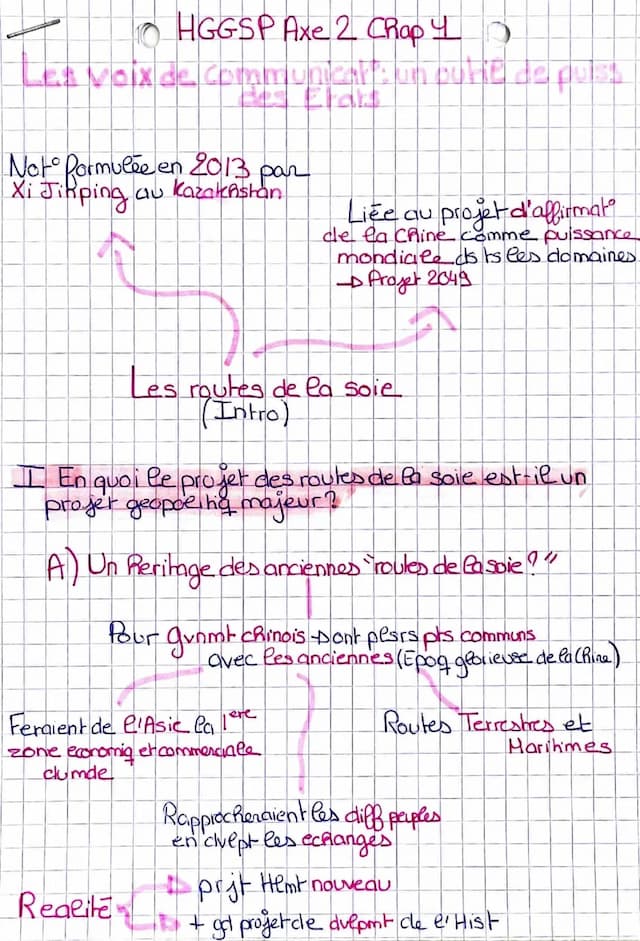 HGGSP Axe 2 Chap 4
Les voix de communicat°: un outil de puiss
des Etats
Not° formulée en 2013 par
Xi Jinping au Kazakhstan
Liée au projet d'affirmat°
de la Chine comme puissance
mondiale ds ts les domaines
→ Projet 2049
Les routes de la soie
(Intro)
I En quoi le projet des routes de la soie est-il un
projet geopolitiq majeur?
A) Un heritage des anciennes "routes de la soie?"
Pour gvnmt chinois → ont plsrs pts communs
avec les anciennes (Epoq glorieuse de la Chine)
Feraient de l'Asie la 1ere
zone economiq et commerciale
du mde
Routes Terrestres et
Maritimes
Rapprocheraient les diff peuples
en dvlpt les echanges
Realité
prjt Hlmt nouveau
+ gd projet de dvlpmt de l'Hist